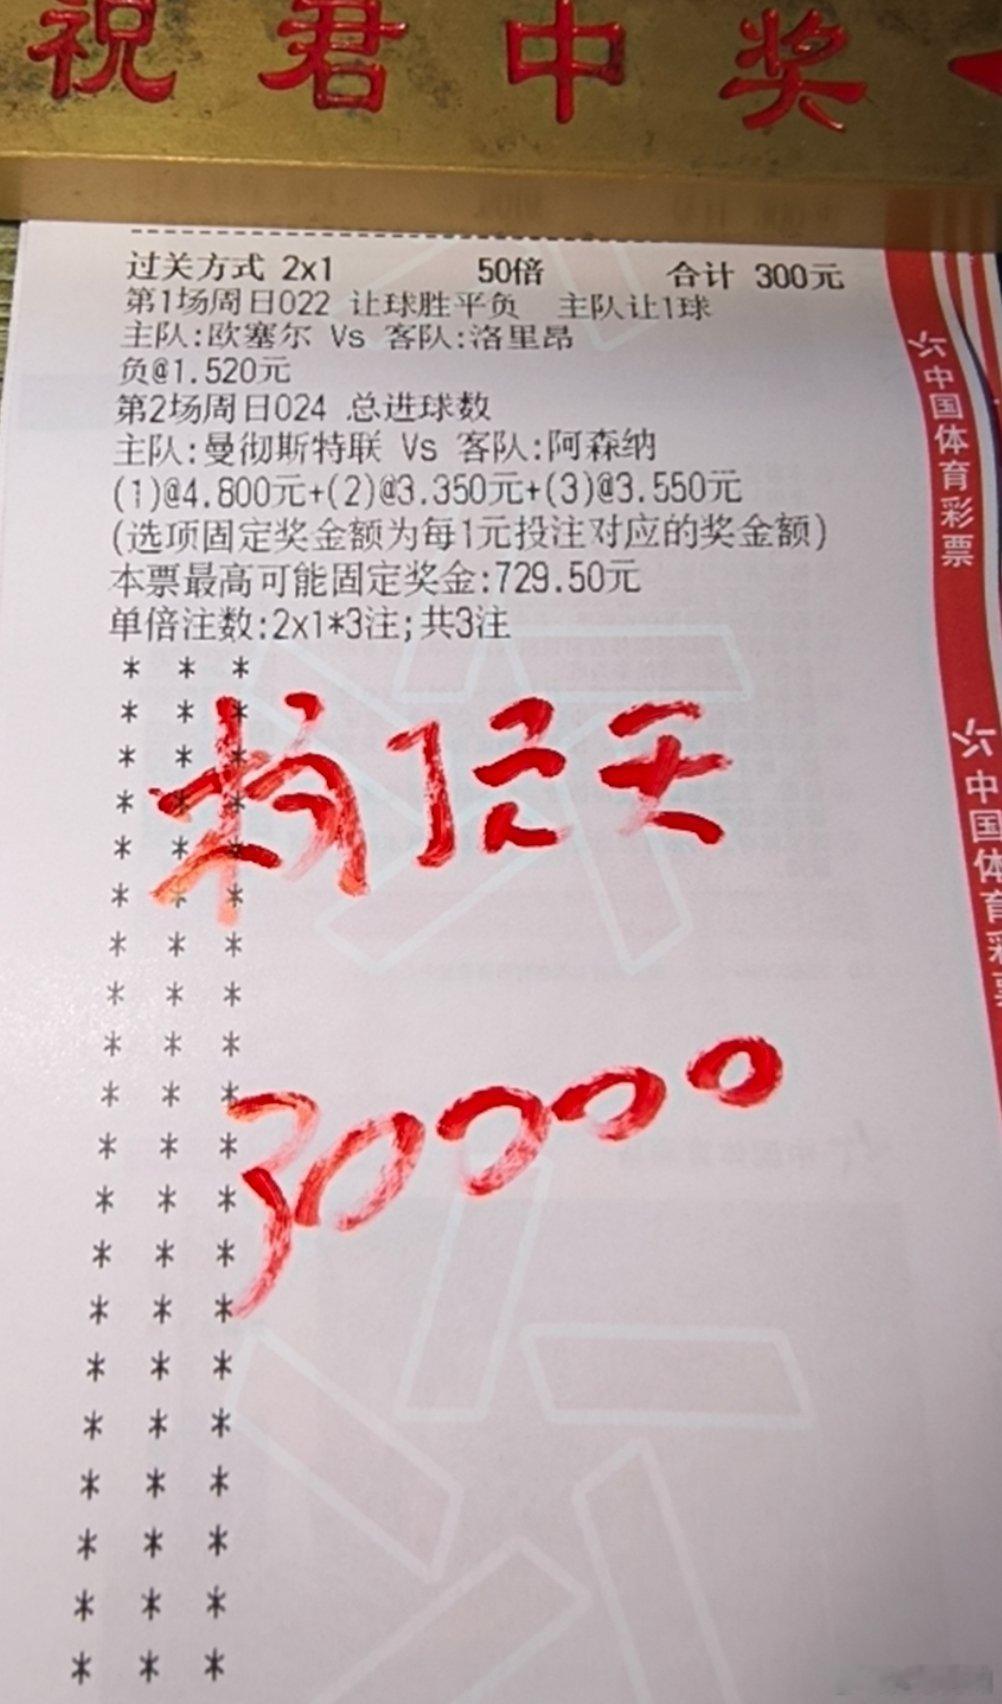 祝君中奖
过关方式 2x1 50倍 合计 300元
第1场周日022 让球胜平负 主队让1球
主队:欧塞尔 Vs 客队:洛里昂
负@1.520元
第2场周日024 总进球数
主队:曼彻斯特联 Vs 客队:阿森纳
(1)@4.800元+(2)@3.350元+(3)@3.550元
(选项固定奖金额为每1元投注对应的奖金额)
本票最高可能固定奖金:729.50元
单倍注数:2x1*3注;共3注
* * *
* * *
* * *
* * *
* * *
* * *
* * *
* * *
* * *
* * *
* * *
* * *
* * *
* * *
* * *
* * *
* * *
* * *
* * *
* * *
30000
中国体育彩票
中国体育彩票